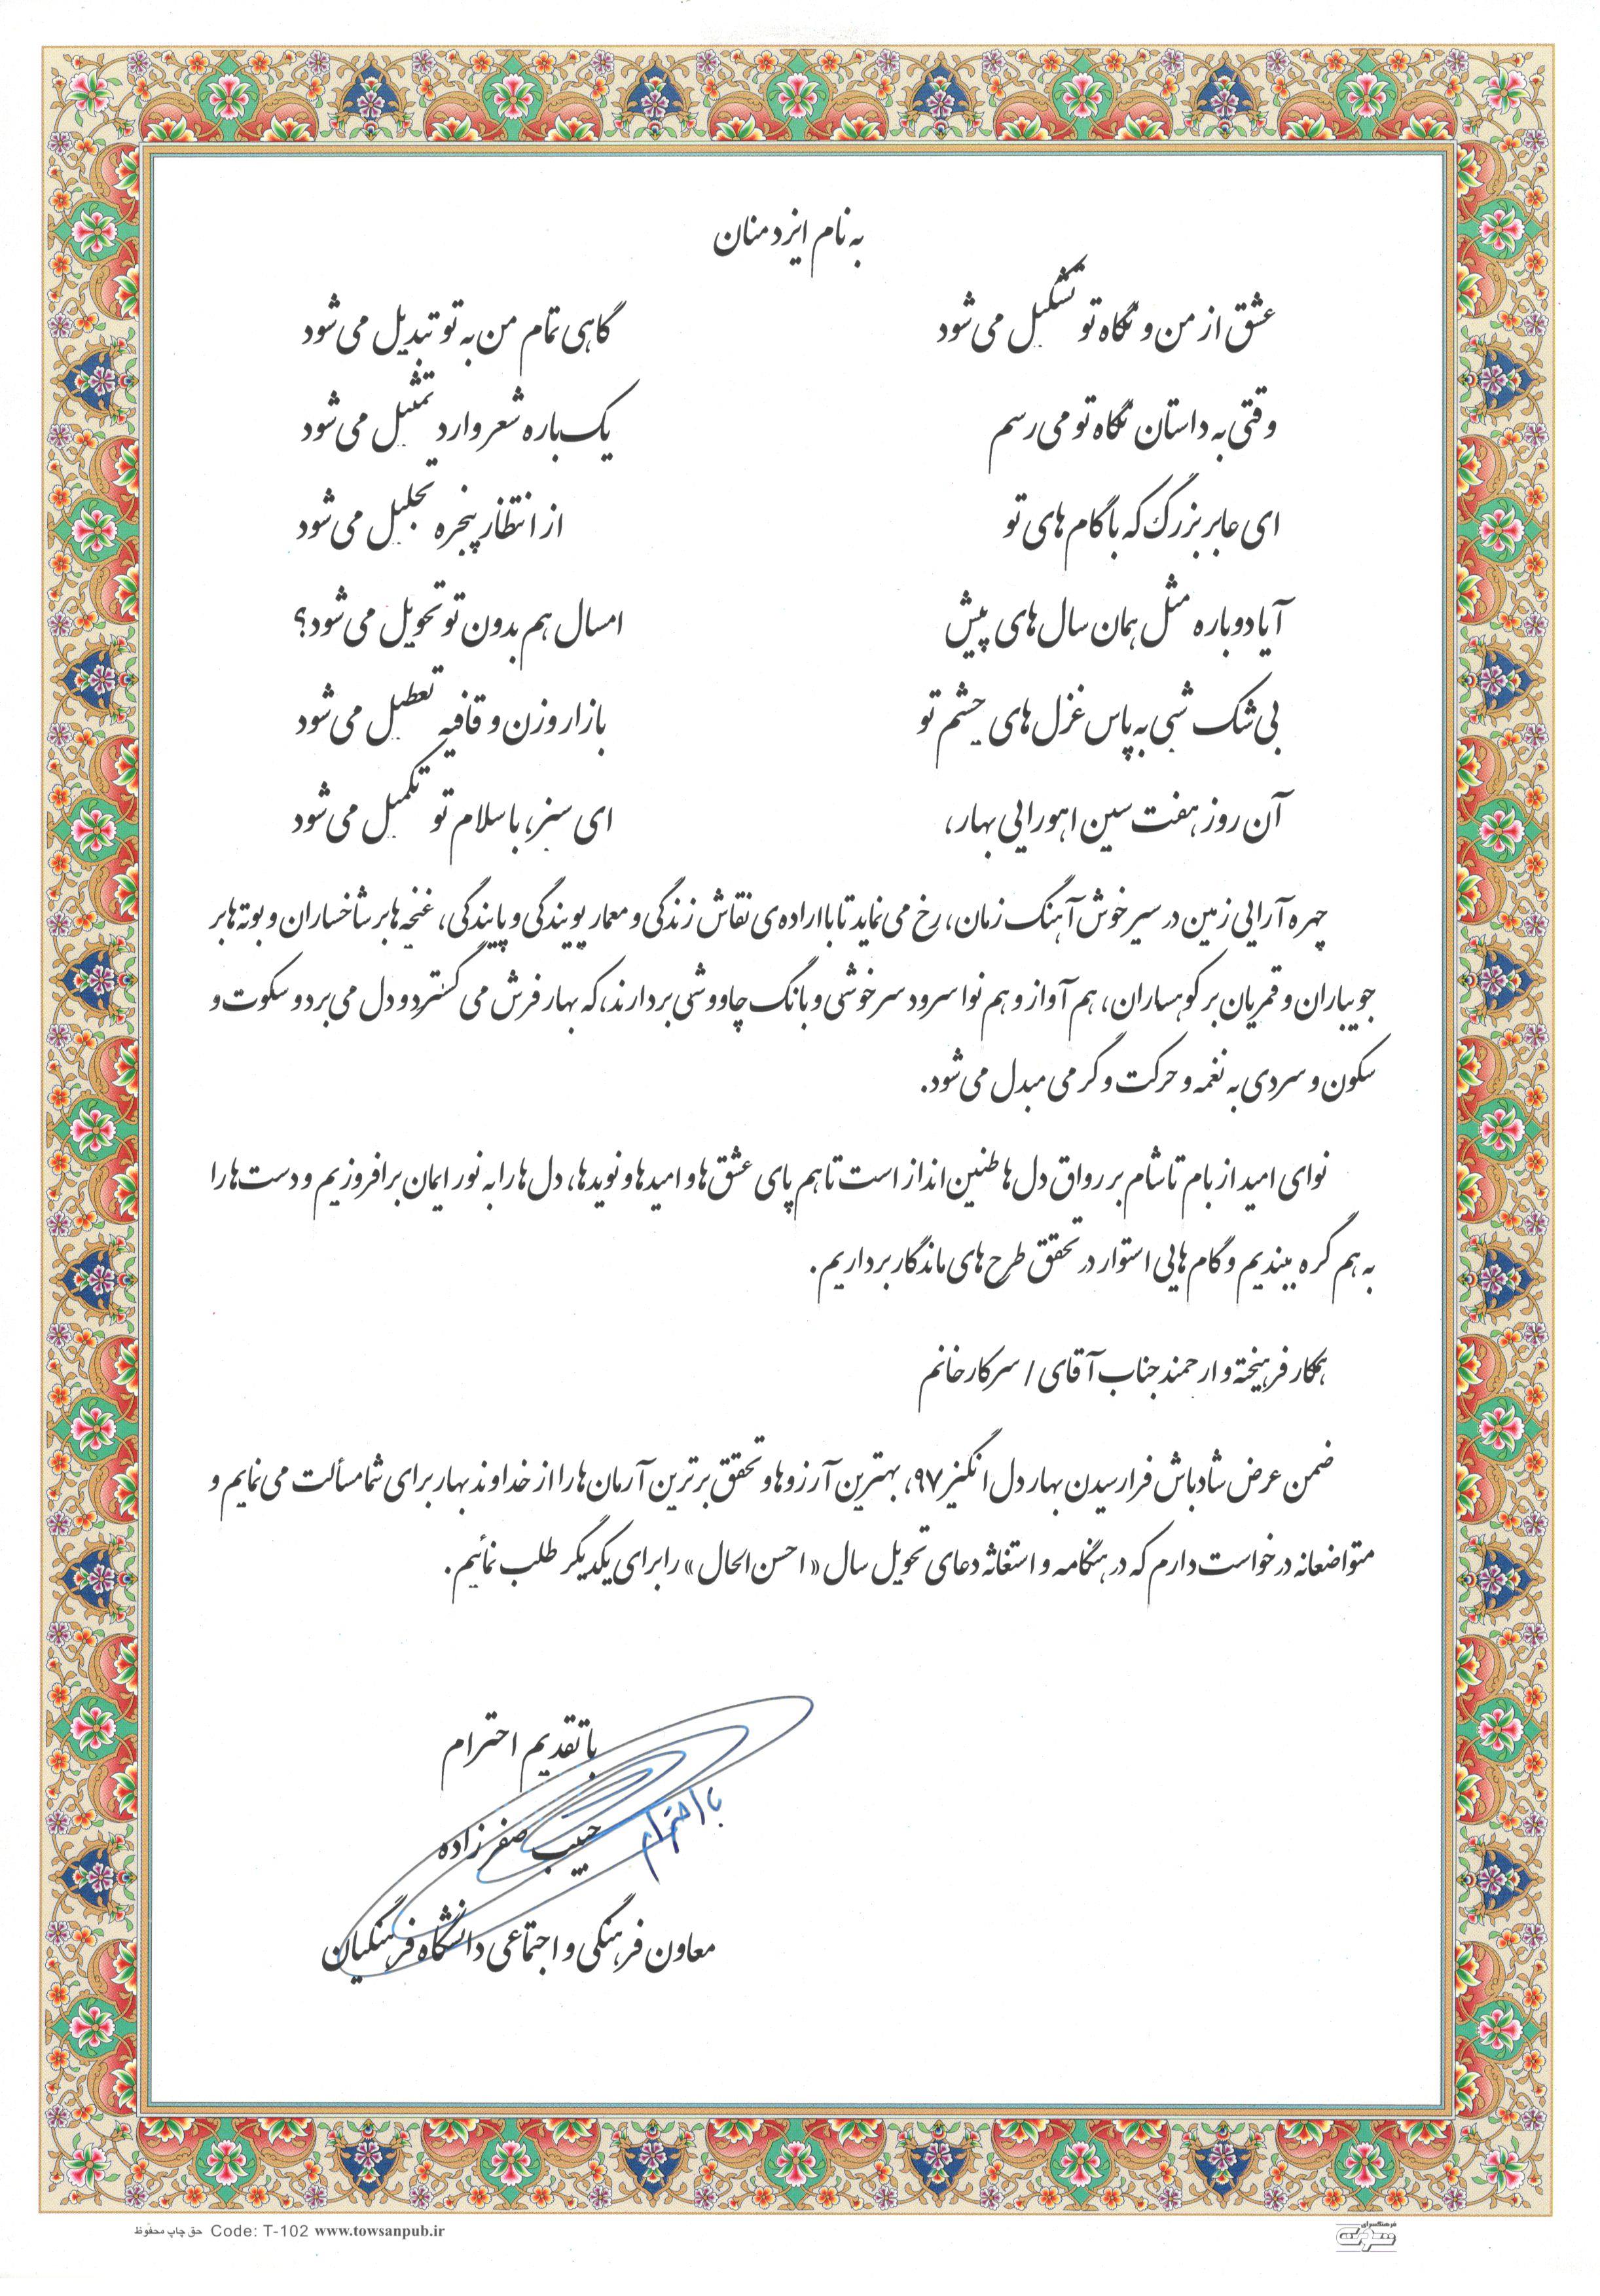 به نام ایزد منان
عشق از من و نگاه تو تشکیل می‌شود گاهی تمام من به تو تبدیل می‌شود
وقتی به داستان نگاه تو می‌رسم یک باره شعر وارد تمثیل می‌شود
ای عابر بزرگ که با گام های تو از انتظار پنجره تجلیل می‌شود
آیا دوباره مثل همان سال های پیش امسال هم بدون تو تحویل می‌شود؟
بی شک شبی به پاس غزل های چشم تو بازار وزن و قافیه تعطیل می‌شود
آن روز هفت سین اهورایی بهار، ای سبز، با سلام تو تکمیل می‌شود
چهره آرایی زمین در سیر خوش آهنگ زمان، رخ می نماید تا با اراده ی نقاش زندگی و معمار پویندگی و پایندگی، غنچه ها بر شاخساران و بوته ها بر
جویباران و قمریان بر کوهساران، هم آواز و هم نوا سرود سرخوشی و بانگ چاووشی بردارند، که بهار فرش می گسترد و دل می برد و سکوت و
سکون و سردی به نغمه و حرکت و گرمی مبدل می‌شود.
نوای امید از بام تا شام بر رواق دل ها طنین انداز است تا هم پای عشق ها و امیدها و نویدها، دل ها را به نور ایمان برافروزیم و دست ها را
به هم گره ببندیم و گام هایی استوار در تحقق طرح های ماندگار برداریم.
همکار فرهیخته و ارجمند جناب آقای / سرکار خانم
ضمن عرض شادباش فرارسیدن بهار دل انگیز ۹۷، بهترین آرزوها و تحقق برترین آرمان ها را از خداوند بهار برای شما مسألت می نمایم و
متواضعانه درخواست دارم که در هنگامه و استغاثه دعای تحویل سال «احسن الحال» را برای یکدیگر طلب نمائیم.
با تقدیم احترام
با احترام
حبیب صفرزاده
معاون فرهنگی و اجتماعی دانشگاه فرهنگیان
حق چاپ محفوظ Code: T-102 www.towsanpub.ir
فرهنگسرای